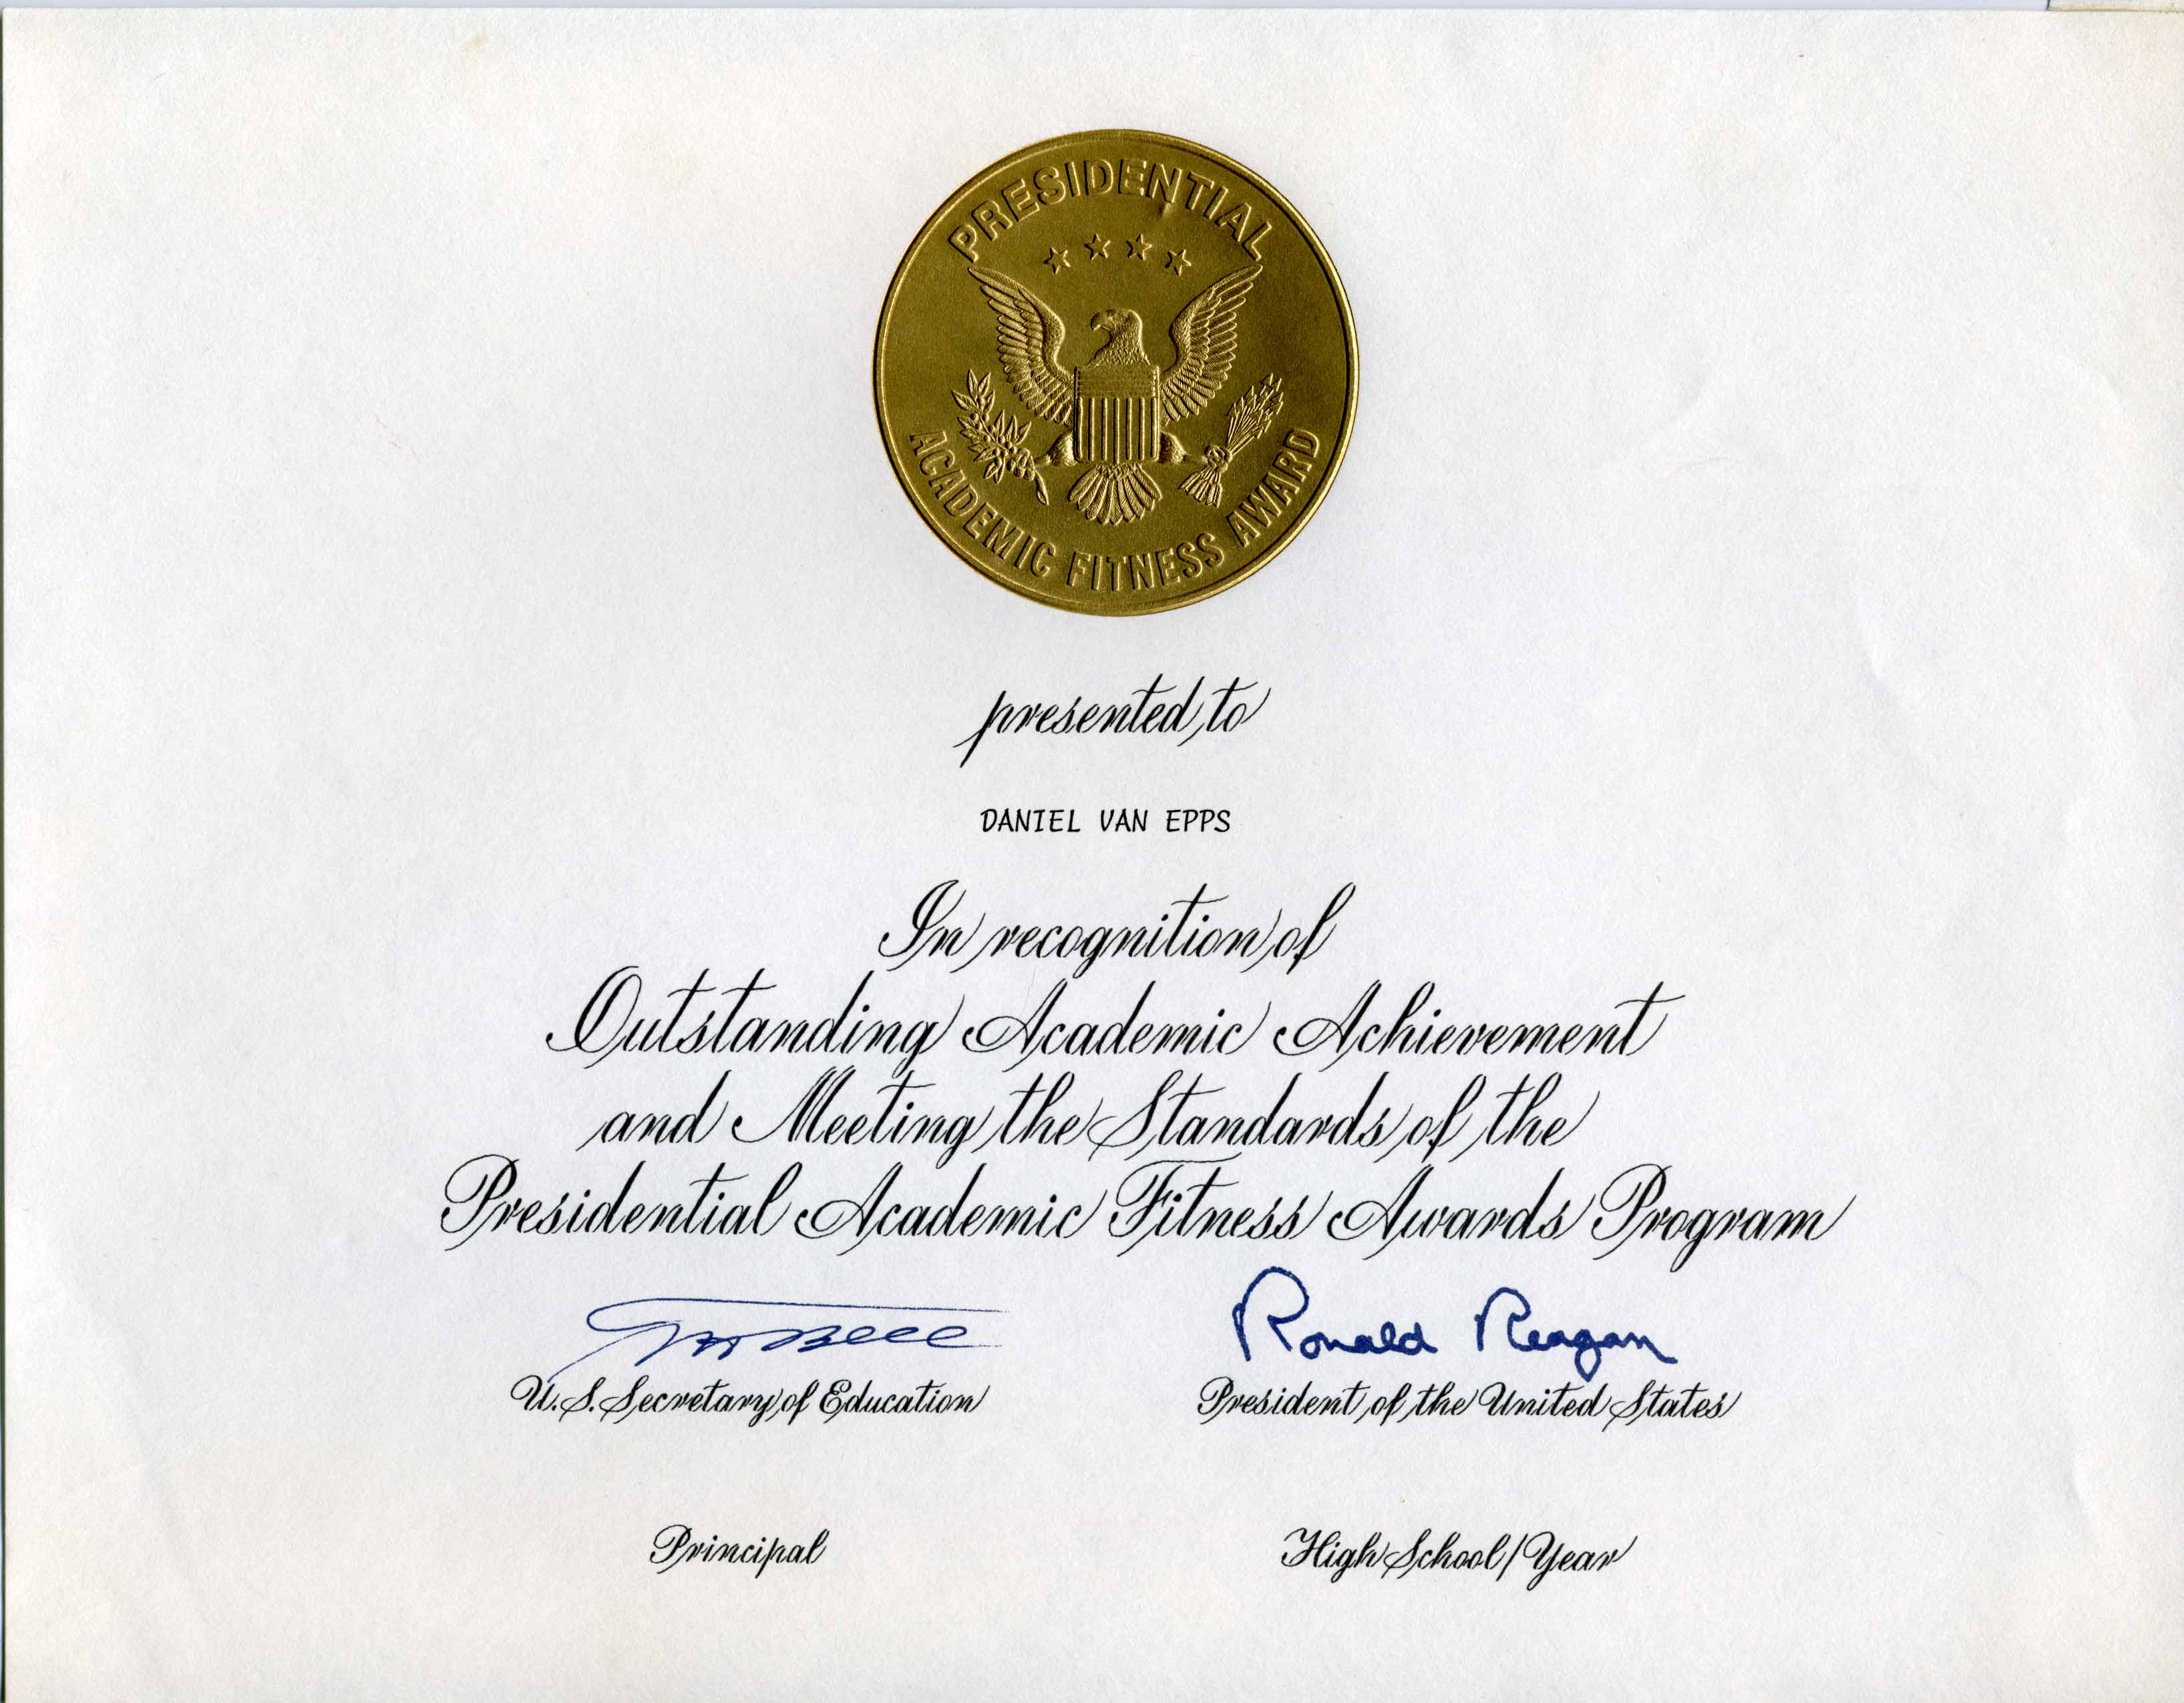 PRESIDENTIAL
ACADEMIC FITNESS AWARD
presented to
DANIEL VAN EPPS
In recognition of
Outstanding Academic Achievement
and Meeting the Standards of the
Presidential Academic Fitness Awards Program
Ronald Reagan
U.S. Secretary of Education
President of the United States
Principal
High School/Year